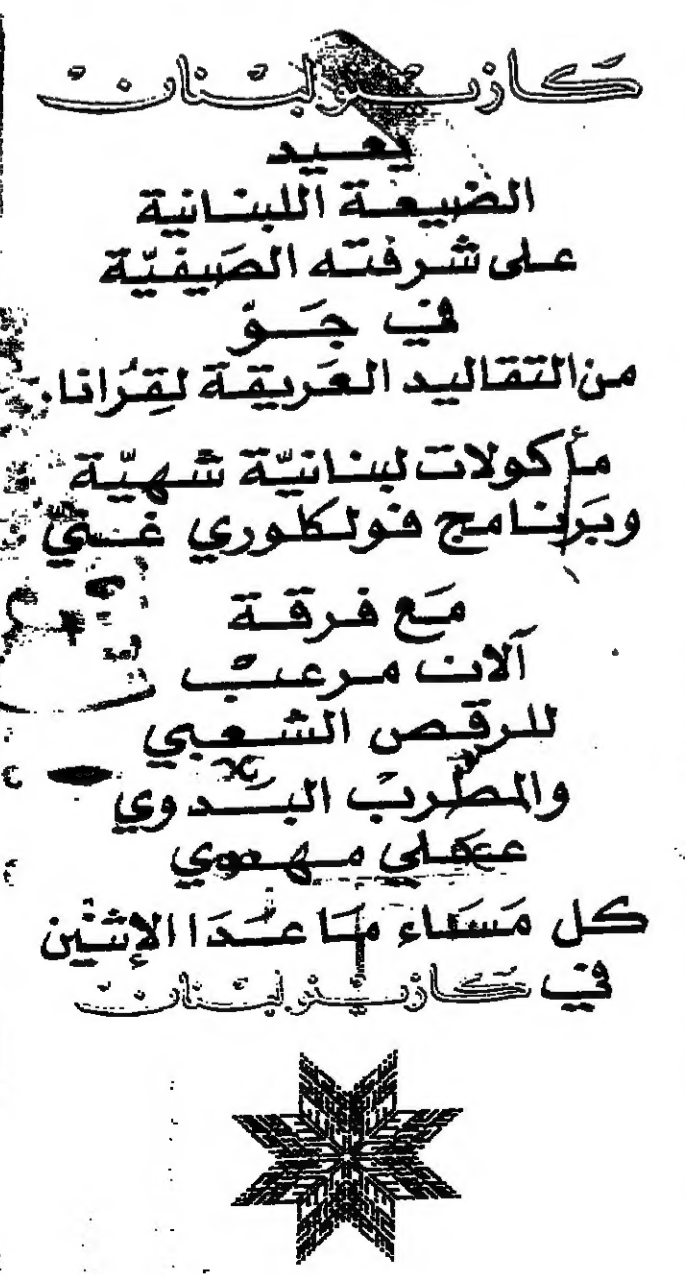 كازينو لبنان
يعيد
الضيعة اللبنانية
على شرفته الصَيفيّة
في جَوّ
من التقاليد العَريقة لقِرُانا.
مأكولات لبنانيّة شهيّة
وبَرنامج فولكلوري غني
مَع فرقة
آلان مرعب
للرقص الشعبي
والمطرب البدوي
علي مهدوي
كل مَسَاء مَا عَدَا الإثنَين
في كازينو لبنان